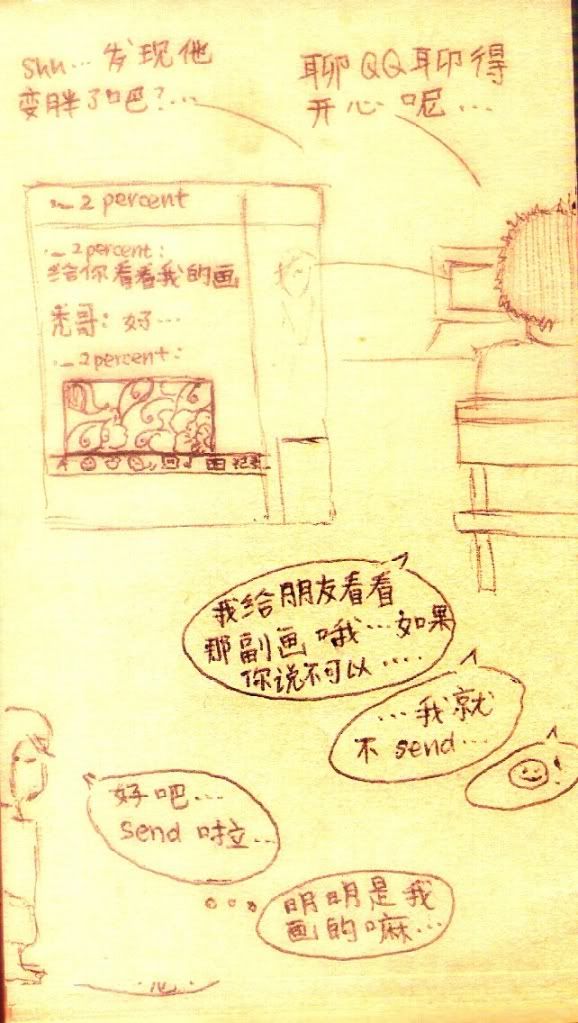 shh... 发现他
变胖了吧?...
聊QQ聊得
开心呢...
._2 percent
._2 percent:
给你看看我的画
秃哥: 好...
._2 percent:
我给朋友看看
那副画哦...如果
你说不可以.....
...我就
不 send...
!
好吧...
send 啦...
明明是我
画的嘛...